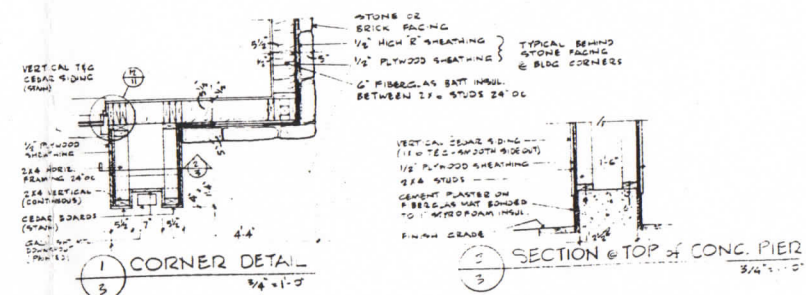 STONE OR
BRICK FACING
1/2" HIGH "R" SHEATHING
1/2" PLYWOOD SHEATHING
TYPICAL BEHIND
STONE FACING
@ BLDG CORNERS
6" FIBERGLAS BATT INSUL.
BETWEEN 2x6 STUDS 24" OC
5 1/2"
5"
VERTICAL T&G
CEDAR SIDING
(STAIN)
11
1/2" PLYWOOD
SHEATHING
2x4 HORIZ.
FRAMING 24" OC
2x4 VERTICAL
(CONTINUOUS)
CEDAR BOARDS
(STAIN)
DOWNSPOUT
5 1/2 7" 5 1/2
4'-4"
1
3
CORNER DETAIL
3/4" = 1'-0"
VERTICAL CEDAR SIDING
T&G - SMOOTH SIDE OUT)
1/2" PLYWOOD SHEATHING
2x4 STUDS
CEMENT PLASTER ON
FIBERGLAS MAT BONDED
TO 1" STYROFOAM INSUL.
FINISH GRADE
1'-6"
2
3
SECTION @ TOP of CONC. PIER
3/4" = 1'-0"